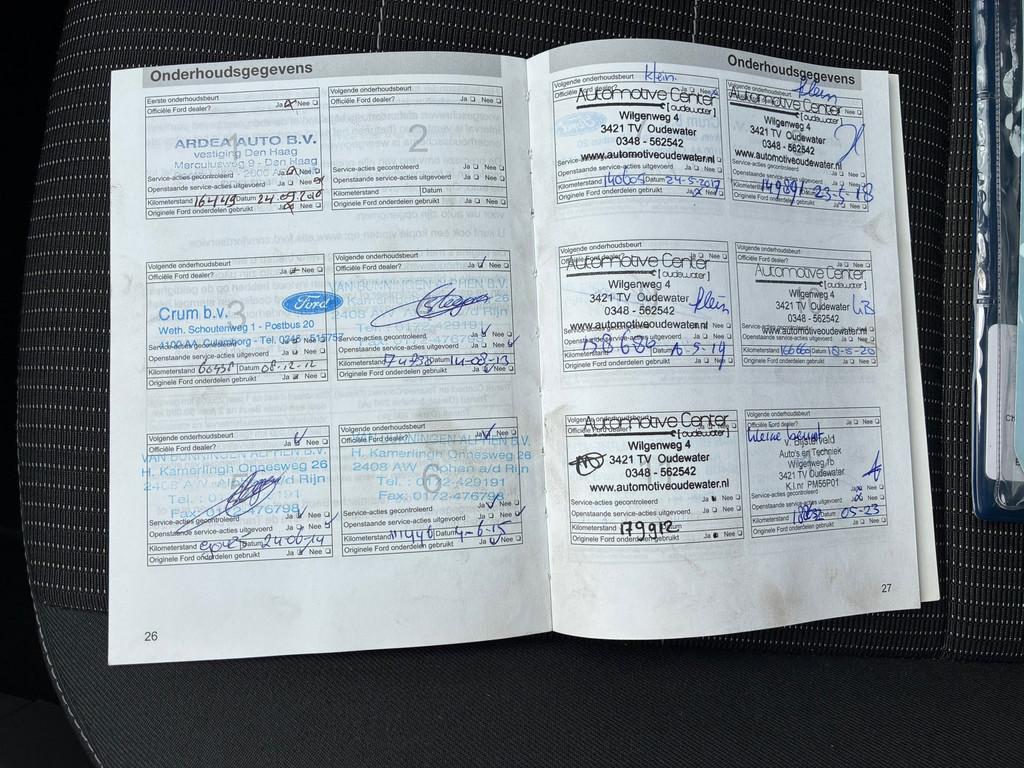 Onderhoudsgegevens
Eerste onderhoudsbeurt
Officiële Ford dealer? Ja Nee
1
ARDEA AUTO B.V.
Vestiging Den Haag
Mercuriusweg 9 - Den Haag
Service-acties gecontroleerd Ja Nee
Openstaande service-acties uitgevoerd Ja Nee
Kilometerstand 16449 Datum
Originele Ford onderdelen gebruikt Ja Nee
Volgende onderhoudsbeurt
Officiële Ford dealer? Ja Nee
2
Service-acties gecontroleerd Ja Nee
Openstaande service-acties uitgevoerd Ja Nee
Kilometerstand Datum
Originele Ford onderdelen gebruikt Ja Nee
Volgende onderhoudsbeurt
Officiële Ford dealer? Ja Nee
3
Ford
Crum b.v.
Weth. Schoutenweg 1 - Postbus 20
4100 AA Culemborg - Tel. 0345 - 515757
Service-acties gecontroleerd Ja Nee
Openstaande service-acties uitgevoerd Ja Nee
Kilometerstand Datum 08-12-12
Originele Ford onderdelen gebruikt Ja Nee
Volgende onderhoudsbeurt
Officiële Ford dealer? Ja Nee
VAN BUNNINGEN ALPHEN B.V.
H. Kamerlingh Onnesweg 26
Service-acties gecontroleerd Ja Nee
Openstaande service-acties uitgevoerd Ja Nee
Kilometerstand Datum 14-08-13
Originele Ford onderdelen gebruikt Ja Nee
Volgende onderhoudsbeurt
Officiële Ford dealer? Ja Nee
VAN BUNNINGEN ALPHEN B.V.
H. Kamerlingh Onnesweg 26
Service-acties gecontroleerd Ja Nee
Openstaande service-acties uitgevoerd Ja Nee
Kilometerstand Datum 24-06-14
Originele Ford onderdelen gebruikt Ja Nee
Volgende onderhoudsbeurt
Officiële Ford dealer? Ja Nee
VAN BUNNINGEN ALPHEN B.V.
H. Kamerlingh Onnesweg 26
2408 AW Alphen a/d Rijn
6
Tel.: 0172-429191
Fax: 0172-476798
Service-acties gecontroleerd Ja Nee
Openstaande service-acties uitgevoerd Ja Nee
Kilometerstand 111446 Datum 4-6-15
Originele Ford onderdelen gebruikt Ja Nee
26
Onderhoudsgegevens
Volgende onderhoudsbeurt klein
Automotive Center
[oudewater]
Wilgenweg 4
3421 TV Oudewater
0348 - 562542
www.automotiveoudewater.nl
Kilometerstand 140605 Datum 24-5-2017
Originele Ford onderdelen gebruikt Ja Nee
Volgende onderhoudsbeurt klein
Automotive Center
[oudewater]
Wilgenweg 4
3421 TV Oudewater
0348 - 562542
www.automotiveoudewater.nl
Openstaande service-acties uitgevoerd Ja Nee
Kilometerstand 149891 Datum 23-5-18
Originele Ford onderdelen gebruikt Ja Nee
Volgende onderhoudsbeurt
Automotive Center
[oudewater]
Wilgenweg 4
3421 TV Oudewater klein
0348 - 562542
www.automotiveoudewater.nl
Kilometerstand 158686 Datum
Originele Ford onderdelen gebruikt Ja Nee
Volgende onderhoudsbeurt
Officiële Ford dealer? Ja Nee
Automotive Center
[oudewater]
Wilgenweg 4
3421 TV Oudewater
0348 - 562542
www.automotiveoudewater.nl
Kilometerstand 166666 Datum 18-5-20
Originele Ford onderdelen gebruikt Ja Nee
Volgende onderhoudsbeurt
Automotive Center
[oudewater]
Wilgenweg 4
3421 TV Oudewater
0348 - 562542
www.automotiveoudewater.nl
Service-acties gecontroleerd Ja Nee
Openstaande service-acties uitgevoerd Ja Nee
Kilometerstand 179912 Datum
Originele Ford onderdelen gebruikt Ja Nee
Volgende onderhoudsbeurt
Officiële Ford dealer? Ja Nee
kleine beurt
v. Bijsterveld
Auto's en Techniek
Wilgenweg 1b
3421 TV Oudewater
K.I.nr PM55P01
Service-acties gecontroleerd Ja Nee
Openstaande service-acties uitgevoerd Ja Nee
Kilometerstand Datum 05-23
Originele Ford onderdelen gebruikt Ja Nee
27